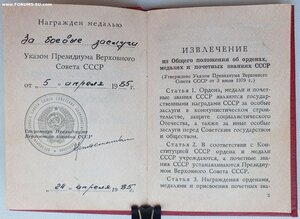 Фалерист.su
Награжден медалью
За боевые заслуги
Указом Президиума Верховного
Совета СССР
от „5" апреля 1985 г.
Секретарь Президиума
Верховного Совета СССР
„24" апреля 1985 г.
ИЗВЛЕЧЕНИЕ
из Общего положения об орденах,
медалях и почетных званиях СССР
(Утверждено Указом Президиума Верховного
Совета СССР от 3 июля 1979 г.)
Статья 1. Ордена, медали и почет-
ные звания СССР являются государ-
ственными наградами СССР за особые
заслуги в коммунистическом строи-
тельстве, защите социалистического
Отечества, а также за иные особые
заслуги перед Советским государством
и обществом.
Статья 2. В соответствии с Консти-
туцией СССР ордена и медали СССР
учреждаются, а почетные звания СССР
устанавливаются Президиумом Верхов-
ного Совета СССР.
Статья 3. Награждения орденами,
медалями и присвоения почетных зва-